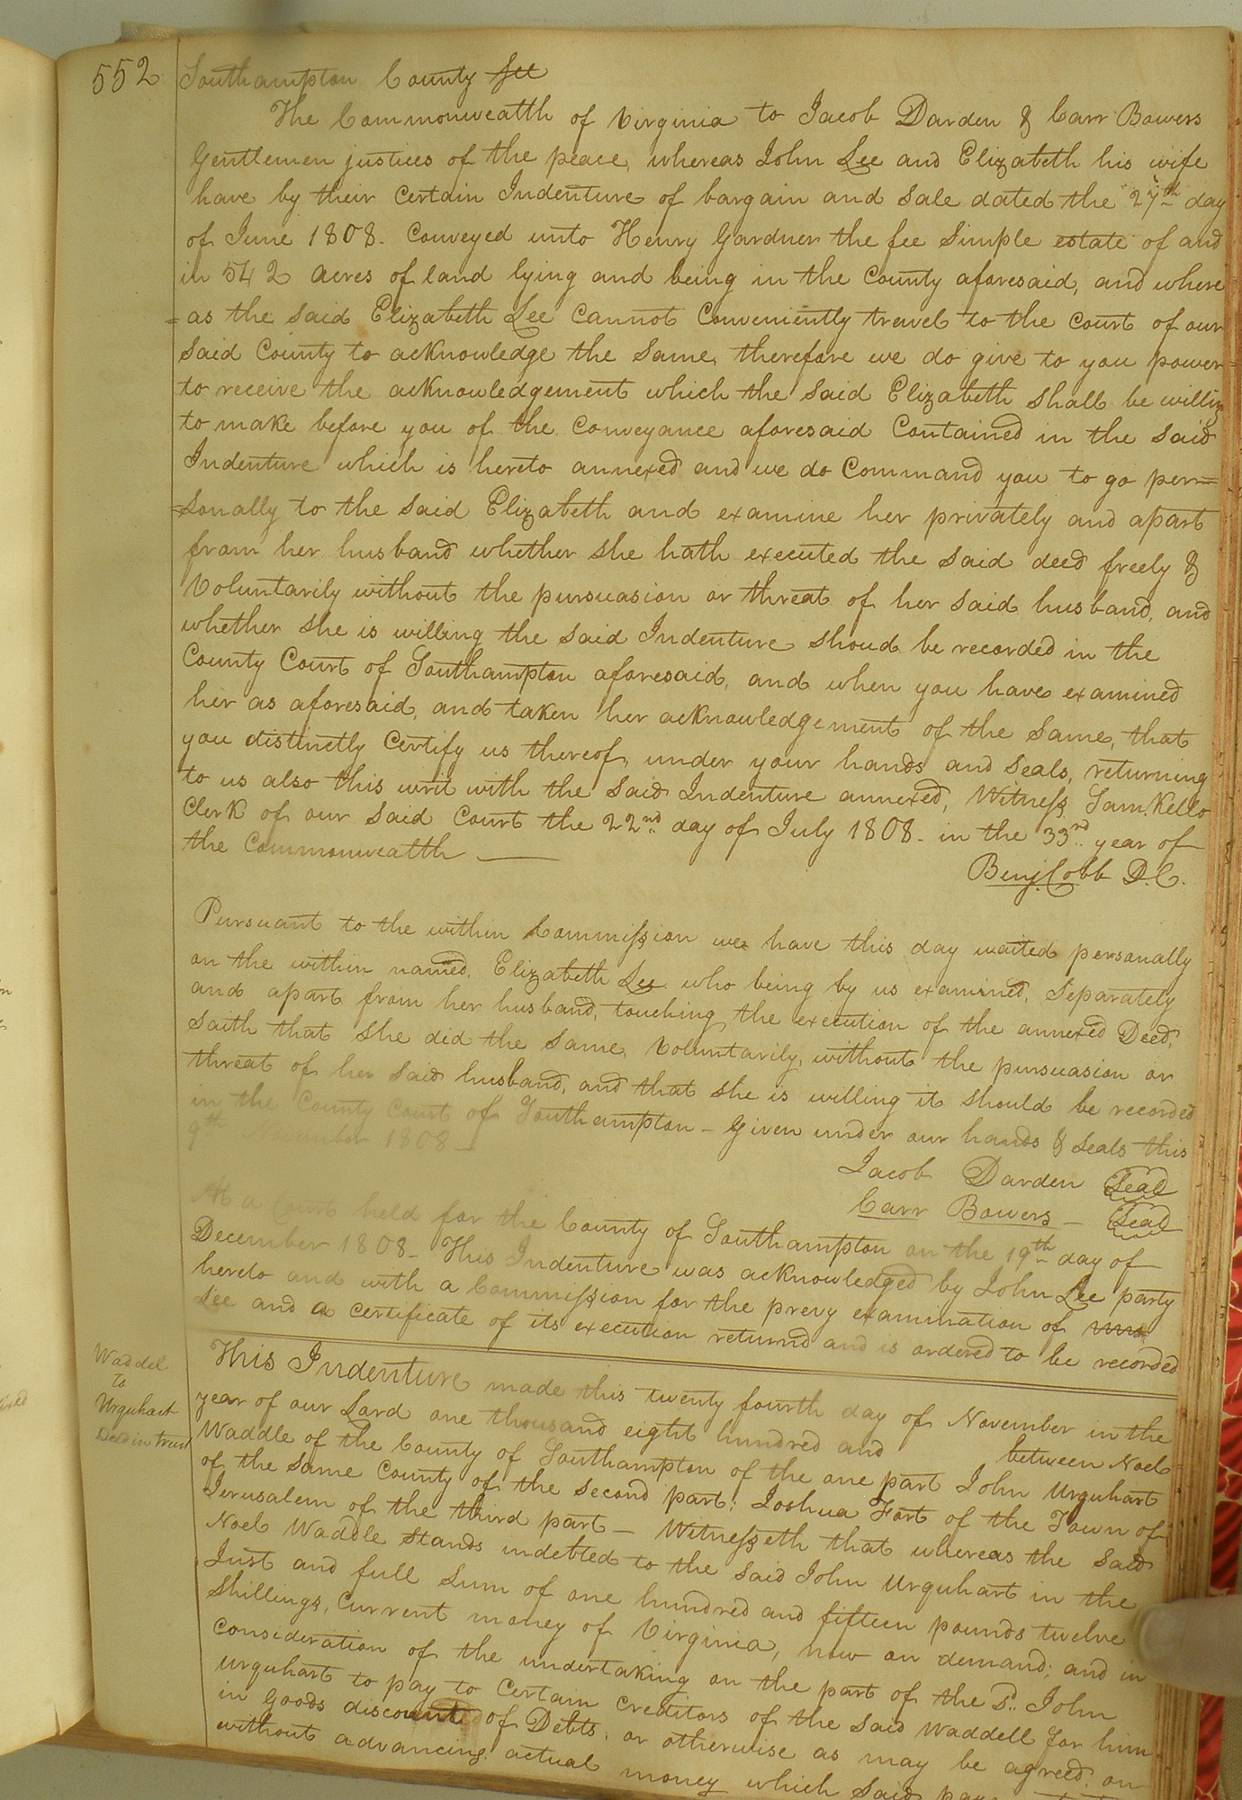 552
Southampton County Sct
The Commonwealth of Virginia to Jacob Darden & Carr Bowers
Gentlemen justices of the peace, whereas John Lee and Elizabeth his wife
have by their certain Indenture of bargain and Sale dated the 27th day
of June 1808. Conveyed unto Henry Gardner the fee Simple estate of and
in 542 acres of land lying and being in the County aforesaid, and where
=as the said Elizabeth Lee cannot Conveniently travel to the court of our
Said County to acknowledge the Same, therefore we do give to you power
to receive the acknowledgement which the said Elizabeth shall be willing
to make before you of the conveyance aforesaid Contained in the said
Indenture which is hereto annexed and we do Command you to go per=
=sonally to the said Elizabeth and examine her privately and apart
from her husband whether she hath executed the said deed freely &
Voluntarily without the pursuasion or threat of her said husband, and
whether she is willing the said Indenture shoud be recorded in the
County Court of Southampton aforesaid, and when you have examined
her as aforesaid, and taken her acknowledgement of the Same, that
you distinctly certify us thereof, under your hands and seals, returning
to us also this writ with the said Indenture annexed, Witness Saml. Kello
Clerk of our said court the 22nd day of July 1808. in the 33rd year of
the Commonwealth
Benj. Cobb D.C.
Pursuant to the within Commission we have this day waited personally
on the within named, Elizabeth Lee who being by us examined, Separately
and apart from her husband, touching the execution of the annexed Deed,
Saith that she did the same, Voluntarily, without the pursuasion or
threat of her said husband, and that she is willing it should be recorded
in the County Court of Southampton – Given under our hands & seals this
9th November 1808
Jacob Darden Seal
Carr Bowers – Seal
At a Court held for the County of Southampton on the 19th day of
December 1808 – This Indenture was acknowledged by John Lee party
hereto and with a Commission for the prevy examination of
Lee and a certificate of its execution returnd and is ordered to be recorded
Waddel
to
Urquhart
Deed in trust
This Indenture made this twenty fourth day of November in the
year of our Lord one thousand eight hundred and between Noel
Waddle of the County of Southampton of the one part John Urquhart
of the same County of the second part; Joshua Fort of the Town of
Jerusalem of the third part – Witnesseth that whereas the said
Noel Waddle stands indebted to the said John Urquhart in the
Just and full sum of one hundred and fifteen pounds twelve
Shillings, Current money of Virginia, now on demand; and in
consideration of the undertaking on the part of the sd. John
Urquhart to pay to certain creditors of the said Waddell for him
in goods discounted of Debts, or otherwise as may be agreed, on
without advancing actual money which said